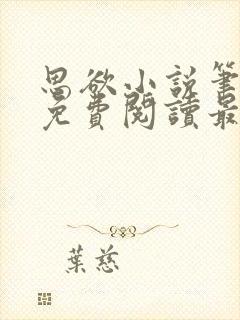 思欲小說筆
免費閱讀最
葉慈